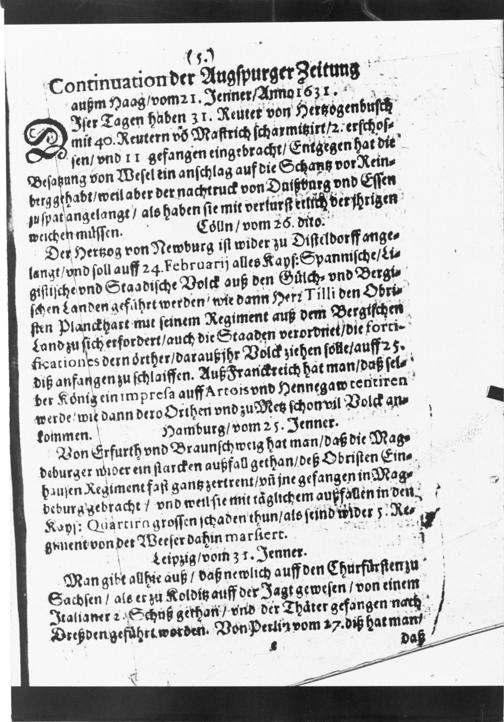 (5.)
Continuation der Augspurger Zeitung
außm Haag/vom 21. Jenner/Anno 1631.
Diser Tagen haben 31. Reuter von Hertzogenbusch
mit 40. Reutern võ Mastrich scharmitzirt/2. erschos-
sen/vnd 11 gefangen eingebracht/Entgegen hat die
Besatzung von Wesel ein anschlag auf die Schantz vor Rein-
berg gehabt/weil aber der nachtruck von Duißburg vnd Essen
zu spat angelangt/als haben sie mit verlurst etlich der jhrigen
weichen müssen. Cölln/vom 26. dito.
Der Hertzog von Newburg ist wider zu Disseldorff ange-
langt/vnd soll auff 24. Februarij alles Kays: Spannische/Li-
gistische vnd Staadische Volck auß den Gülch- vnd Bergi-
schen Landen geführt werden/wie dann Herr Tilli den Obri-
sten Planckhart mit seinem Regiment auß dem Bergischen
Land zu sich erfordert/auch die Staaden verordnet/die forti-
ficationes dern örther/darauß jhr Volck ziehen solle/auff 25.
diß anfangen zu schlaiffen. Auß Franckreich hat man/daß sel-
ber König ein impresa auff Artois vnd Hennegaw tentiren
werde/wie dann dero Orthen vnd zu Metz schon vil Volck an-
kommen. Hamburg/vom 25. Jenner.
Von Erfurth vnd Braunschweig hat man/daß die Mag-
deburger wider ein starcken außfall gethan/deß Obristen Ein-
hausen Regiment fast gantz zertrent/vñ jne gefangen in Mag-
deburg gebracht/vnd weil sie mit täglichem außfallen in den
Kays: Quartirn grossen schaden thun/als seind wider 5. Re-
giment von der Weeser dahin marsiert.
Leipzig/vom 31. Jenner.
Man gibt allhie auß/daß newlich auff den Churfürsten zu
Sachsen/als er zu Kolditz auff der Jagt gewesen/von einem
Italianer 2. Schuß gethan/vnd der Thäter gefangen nach
Dreßden geführt worden. Von Perlin vom 27. diß hat man/
daß